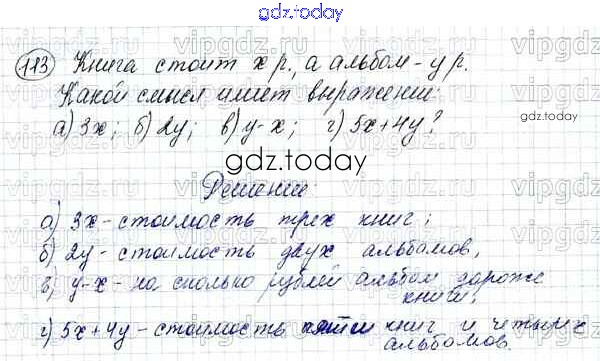 gdz.today
113 Книга стоит х р., а альбом - у р.
Какой смысл имеет выражение:
а) 3х; б) 2у; в) у-х; г) 5х+4у?
gdz.today
gdz.today
Решение:
а) 3х - стоимость трех книг;
б) 2у - стоимость двух альбомов,
в) у-х - на сколько рублей альбом дороже
книги;
г) 5х+4у - стоимость пяти книг и четырех
альбомов.